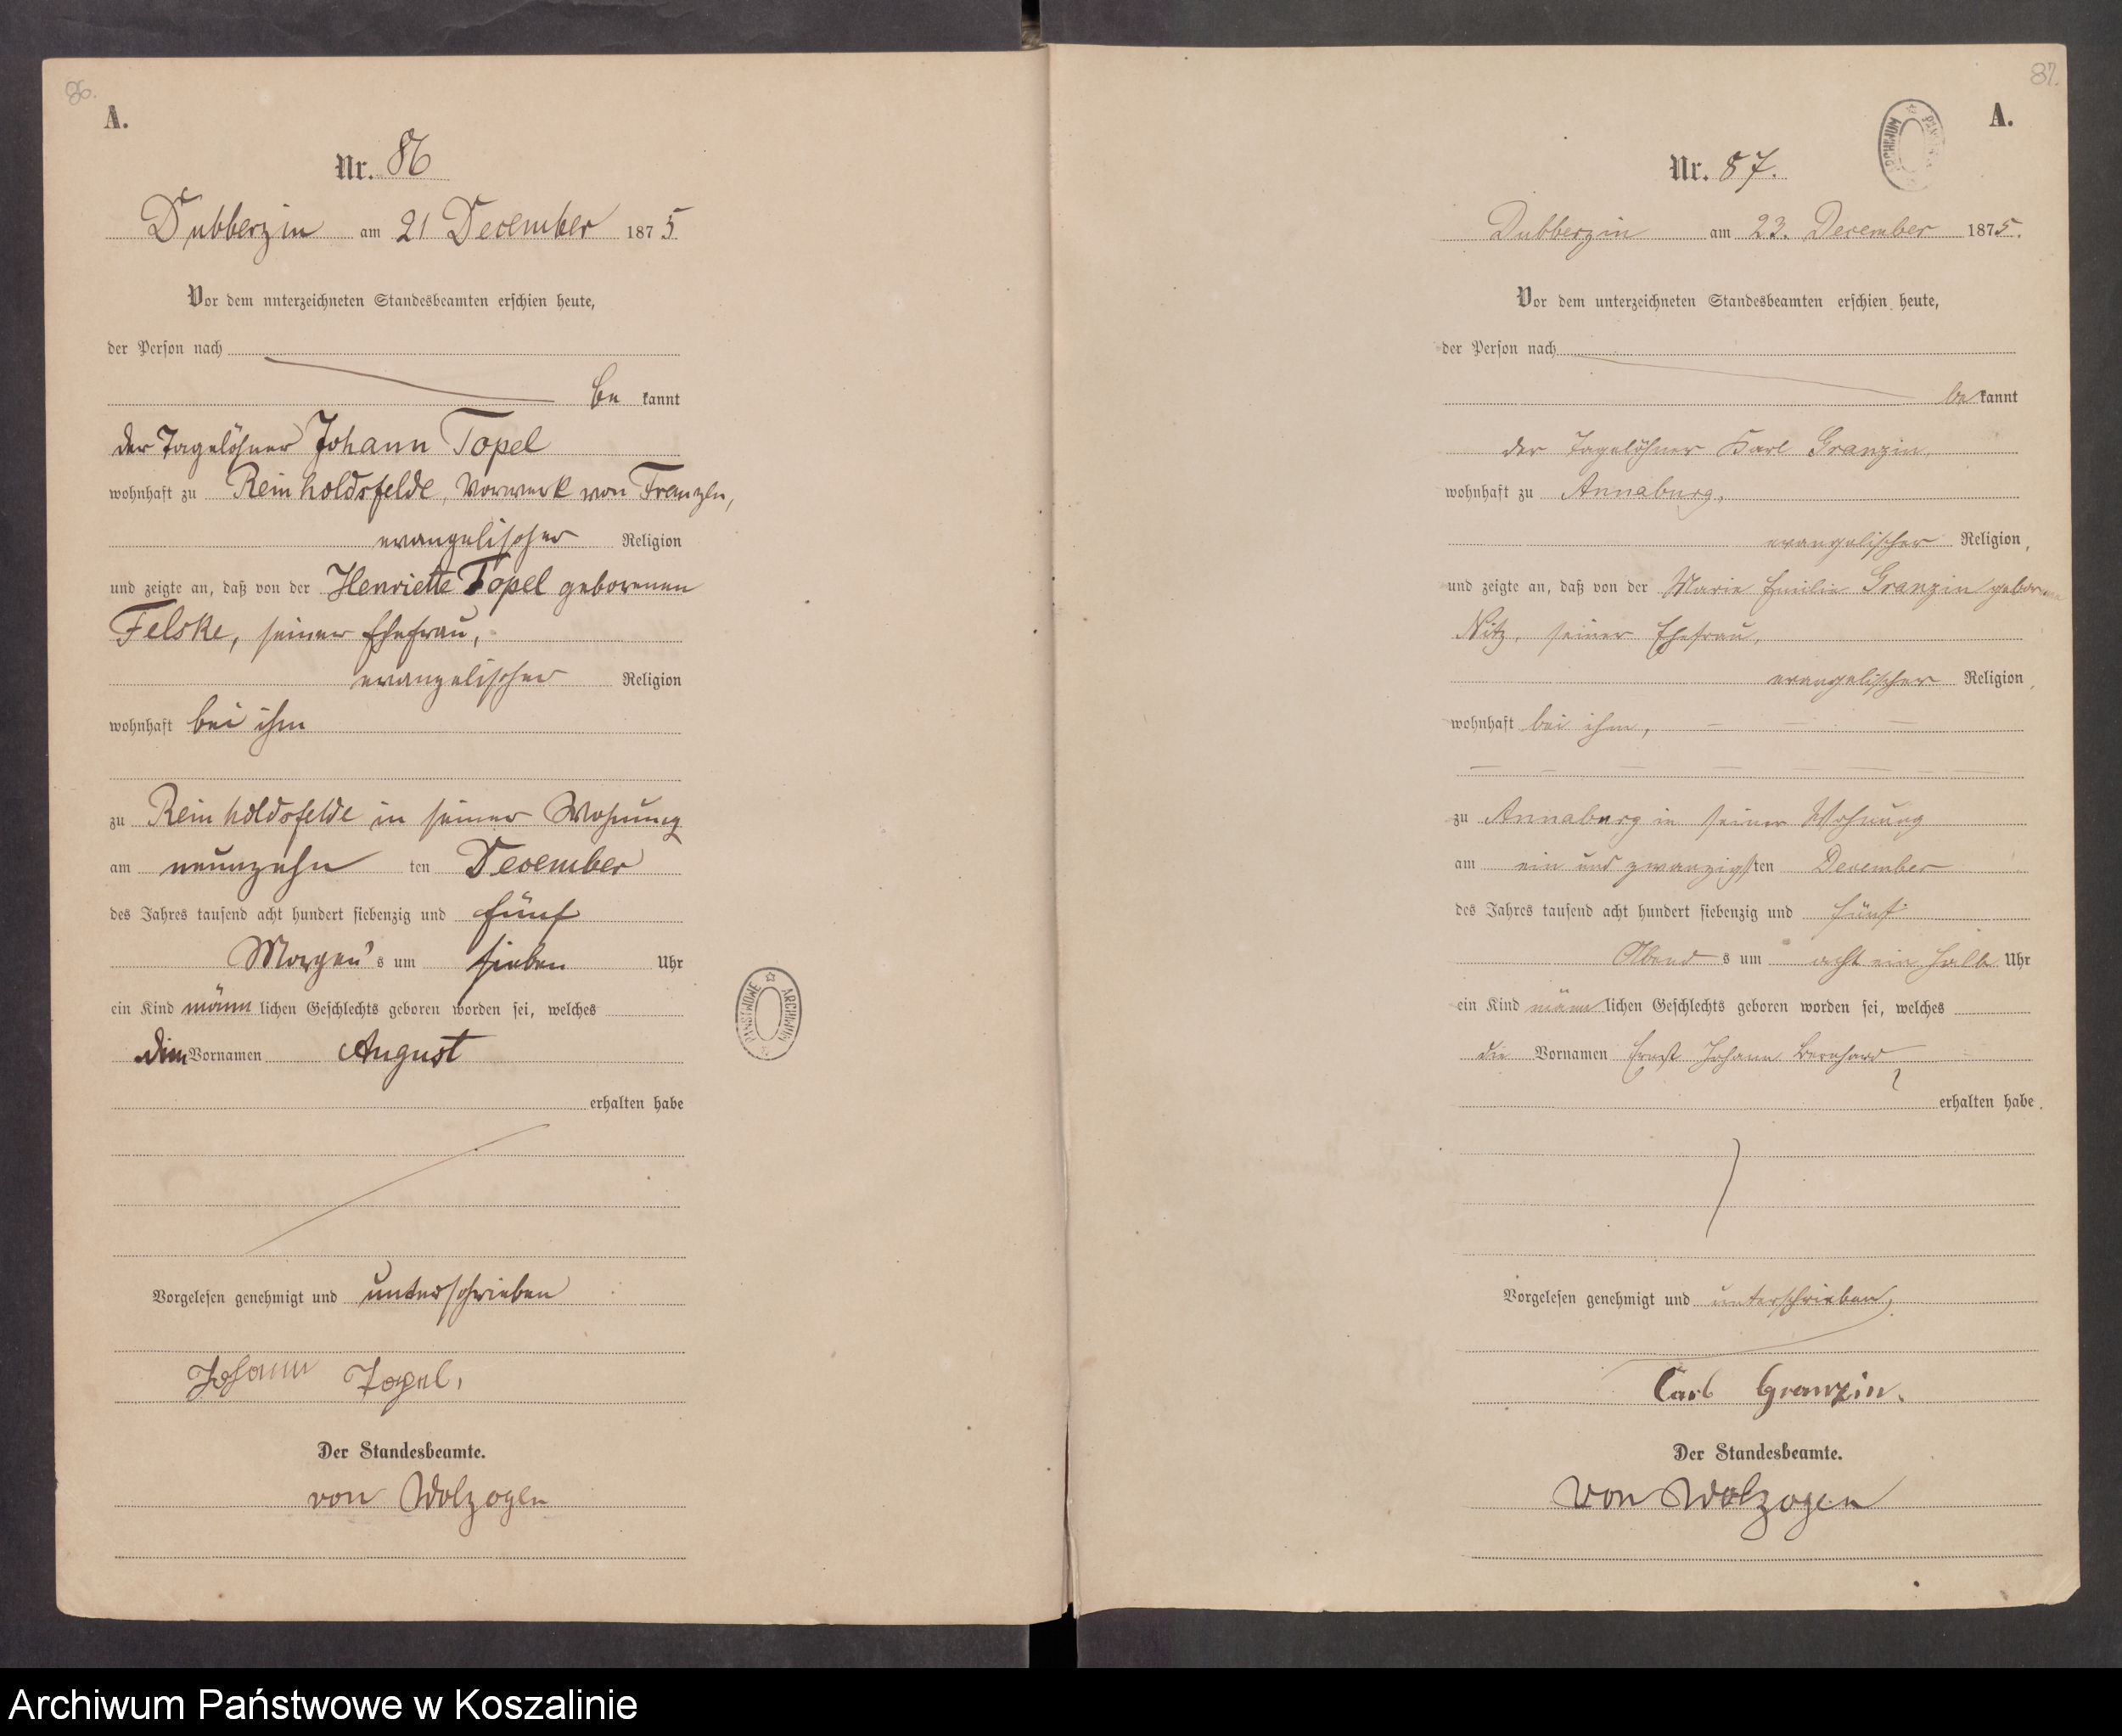 86.
A.
Nr. 86
Dubberzin am 21 December 1875
Vor dem unterzeichneten Standesbeamten erschien heute,
der Person nach
be kannt
der Tagelöhner Johann Topel
wohnhaft zu Reinholdsfelde, Vorwerk von Franzen,
evangelischer Religion
und zeigte an, daß von der Henriette Topel geborenen
Felske, seiner Ehefrau,
evangelischer Religion
wohnhaft bei ihm
zu Reinholdsfelde in seiner Wohnung
am neunzehn ten December
des Jahres tausend acht hundert siebenzig und fünf
Morgen's um sieben Uhr
ein Kind männlichen Geschlechts geboren worden sei, welches
den Vornamen August
erhalten habe
Vorgelesen genehmigt und unterschrieben
Johann Topel,
Der Standesbeamte.
von Wolzogen
PAŃSTWOWE ARCHIWUM
87.
A.
ARCHIWUM
Nr. 87.
Dubberzin am 23. December 1875.
Vor dem unterzeichneten Standesbeamten erschien heute,
der Person nach
be kannt
der Tagelöhner Karl Granzin
wohnhaft zu Annaburg,
evangelischer Religion,
und zeigte an, daß von der Marie Emilie Granzin geborene
Nitz, seiner Ehefrau,
evangelischer Religion,
wohnhaft bei ihm,
zu Annaburg in seiner Wohnung
am ein und zwanzigsten December
des Jahres tausend acht hundert siebenzig und fünf
Abend s um acht ein halb Uhr
ein Kind männlichen Geschlechts geboren worden sei, welches
die Vornamen Ernst Johann Bernhard
erhalten habe.
Vorgelesen genehmigt und unterschrieben,
Carl Granzin.
Der Standesbeamte.
von Wolzogen
Archiwum Państwowe w Koszalinie